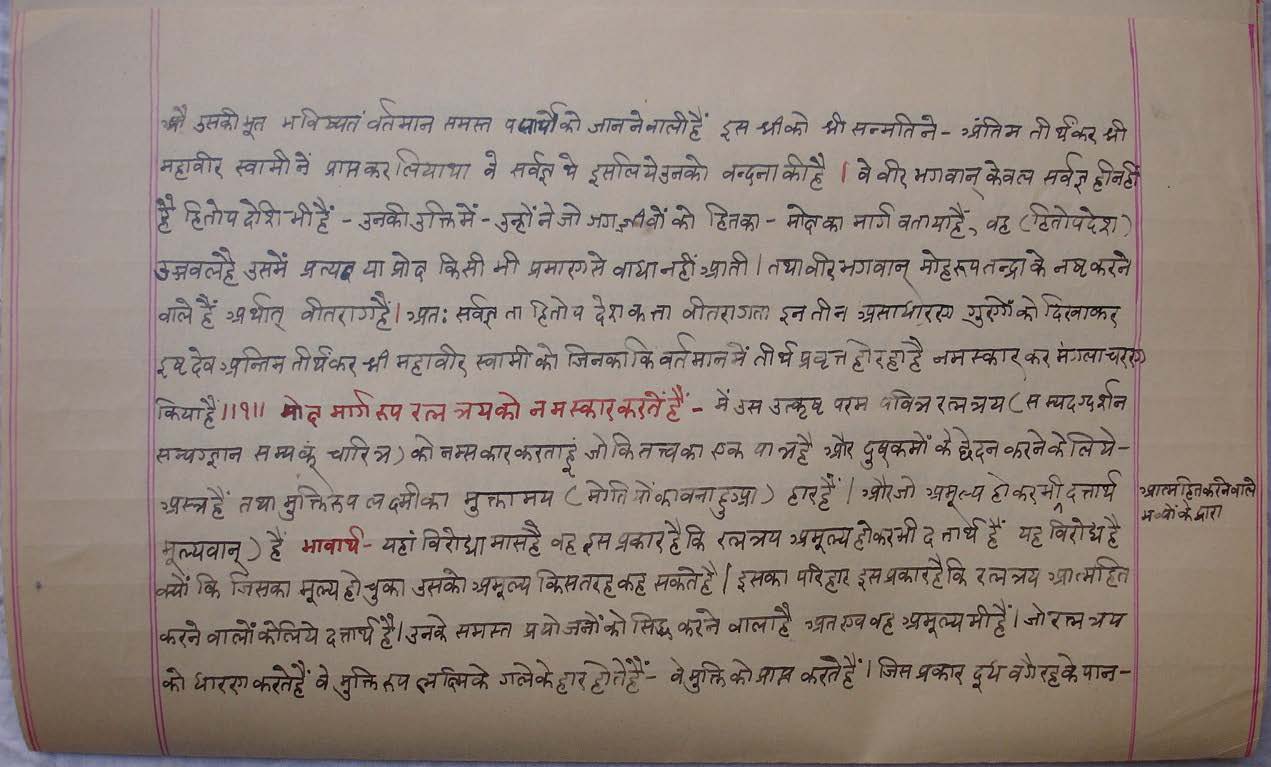 श्री उसकी भूत भविष्यत वर्तमान समस्त पदार्थों को जानने वाली हैं इस श्री को श्री सन्मति ने - अंतिम तीर्थंकर श्री
महावीर स्वामी ने प्राप्त कर लिया था वे सर्वज्ञ थे इसलिये उनको वन्दना की है । वे वीर भगवान् केवल सर्वज्ञ ही नहीं
हैं हितोपदेशि भी हैं - उनकी उक्ति में - उन्होंने जो जगज्जीवों को हितका - मोक्ष का मार्ग बताया हैं, वह (हितोपदेश)
उज्जवल है उसमें प्रत्यक्ष या परोक्ष किसी भी प्रमाण से वाधा नहीं आती । तथा वीर भगवान् मोहरूप तन्द्रा के नष्ट करने
वाले हैं अर्थात् वीतराग हैं । अतः सर्वज्ञता हितोपदेशकता वीतरागता इन तीन असाधारण गुणों को दिखाकर
इष्ट देव अन्तिम तीर्थंकर श्री महावीर स्वामी को जिनका कि वर्तमान में तीर्थ प्रवृत्त हो रहा है नमस्कार कर मंगलाचरण
किया हैं ॥१॥ मोक्ष मार्ग रूप रत्नत्रय को नमस्कार करते हैं - में उस उत्कृष्ट परम पवित्र रत्नत्रय (सम्यग्दर्शन
सम्यग्ज्ञान सम्यक् चारित्र) को नमस्कार करता हूं जो कि तत्त्व का एक पात्र है और दुष्कर्मों के छेदन करने के लिये -
अस्त्र हैं तथा मुक्ति रूप लक्ष्मी का मुक्तामय (मोतियों का वना हुआ) हार हैं । और जो अमूल्य होकर भी दत्तार्घ
आत्महित करने वाले
भव्यों के द्वारा
मूल्यवान्) हैं भावार्थ - यहां विरोधाभास है वह इस प्रकार है कि रत्नत्रय अमूल्य होकर भी दत्तार्घ हैं यह विरोध है
क्यों कि जिसका मूल्य हो चुका उसको अमूल्य किस तरह कह सकते है । इसका परिहार इस प्रकार है कि रत्नत्रय आत्महित
करने वालों के लिये दत्तार्घ है । उनके समस्त प्रयोजनों को सिद्ध करने वाला है अतएव वह अमूल्य भी हैं । जो रत्नत्रय
को धारण करते हैं वे मुक्ति रूप लक्ष्मि के गले के हार होते हैं - वे मुक्ति को प्राप्त करते हैं । जिस प्रकार दूध वगैरह के पान -